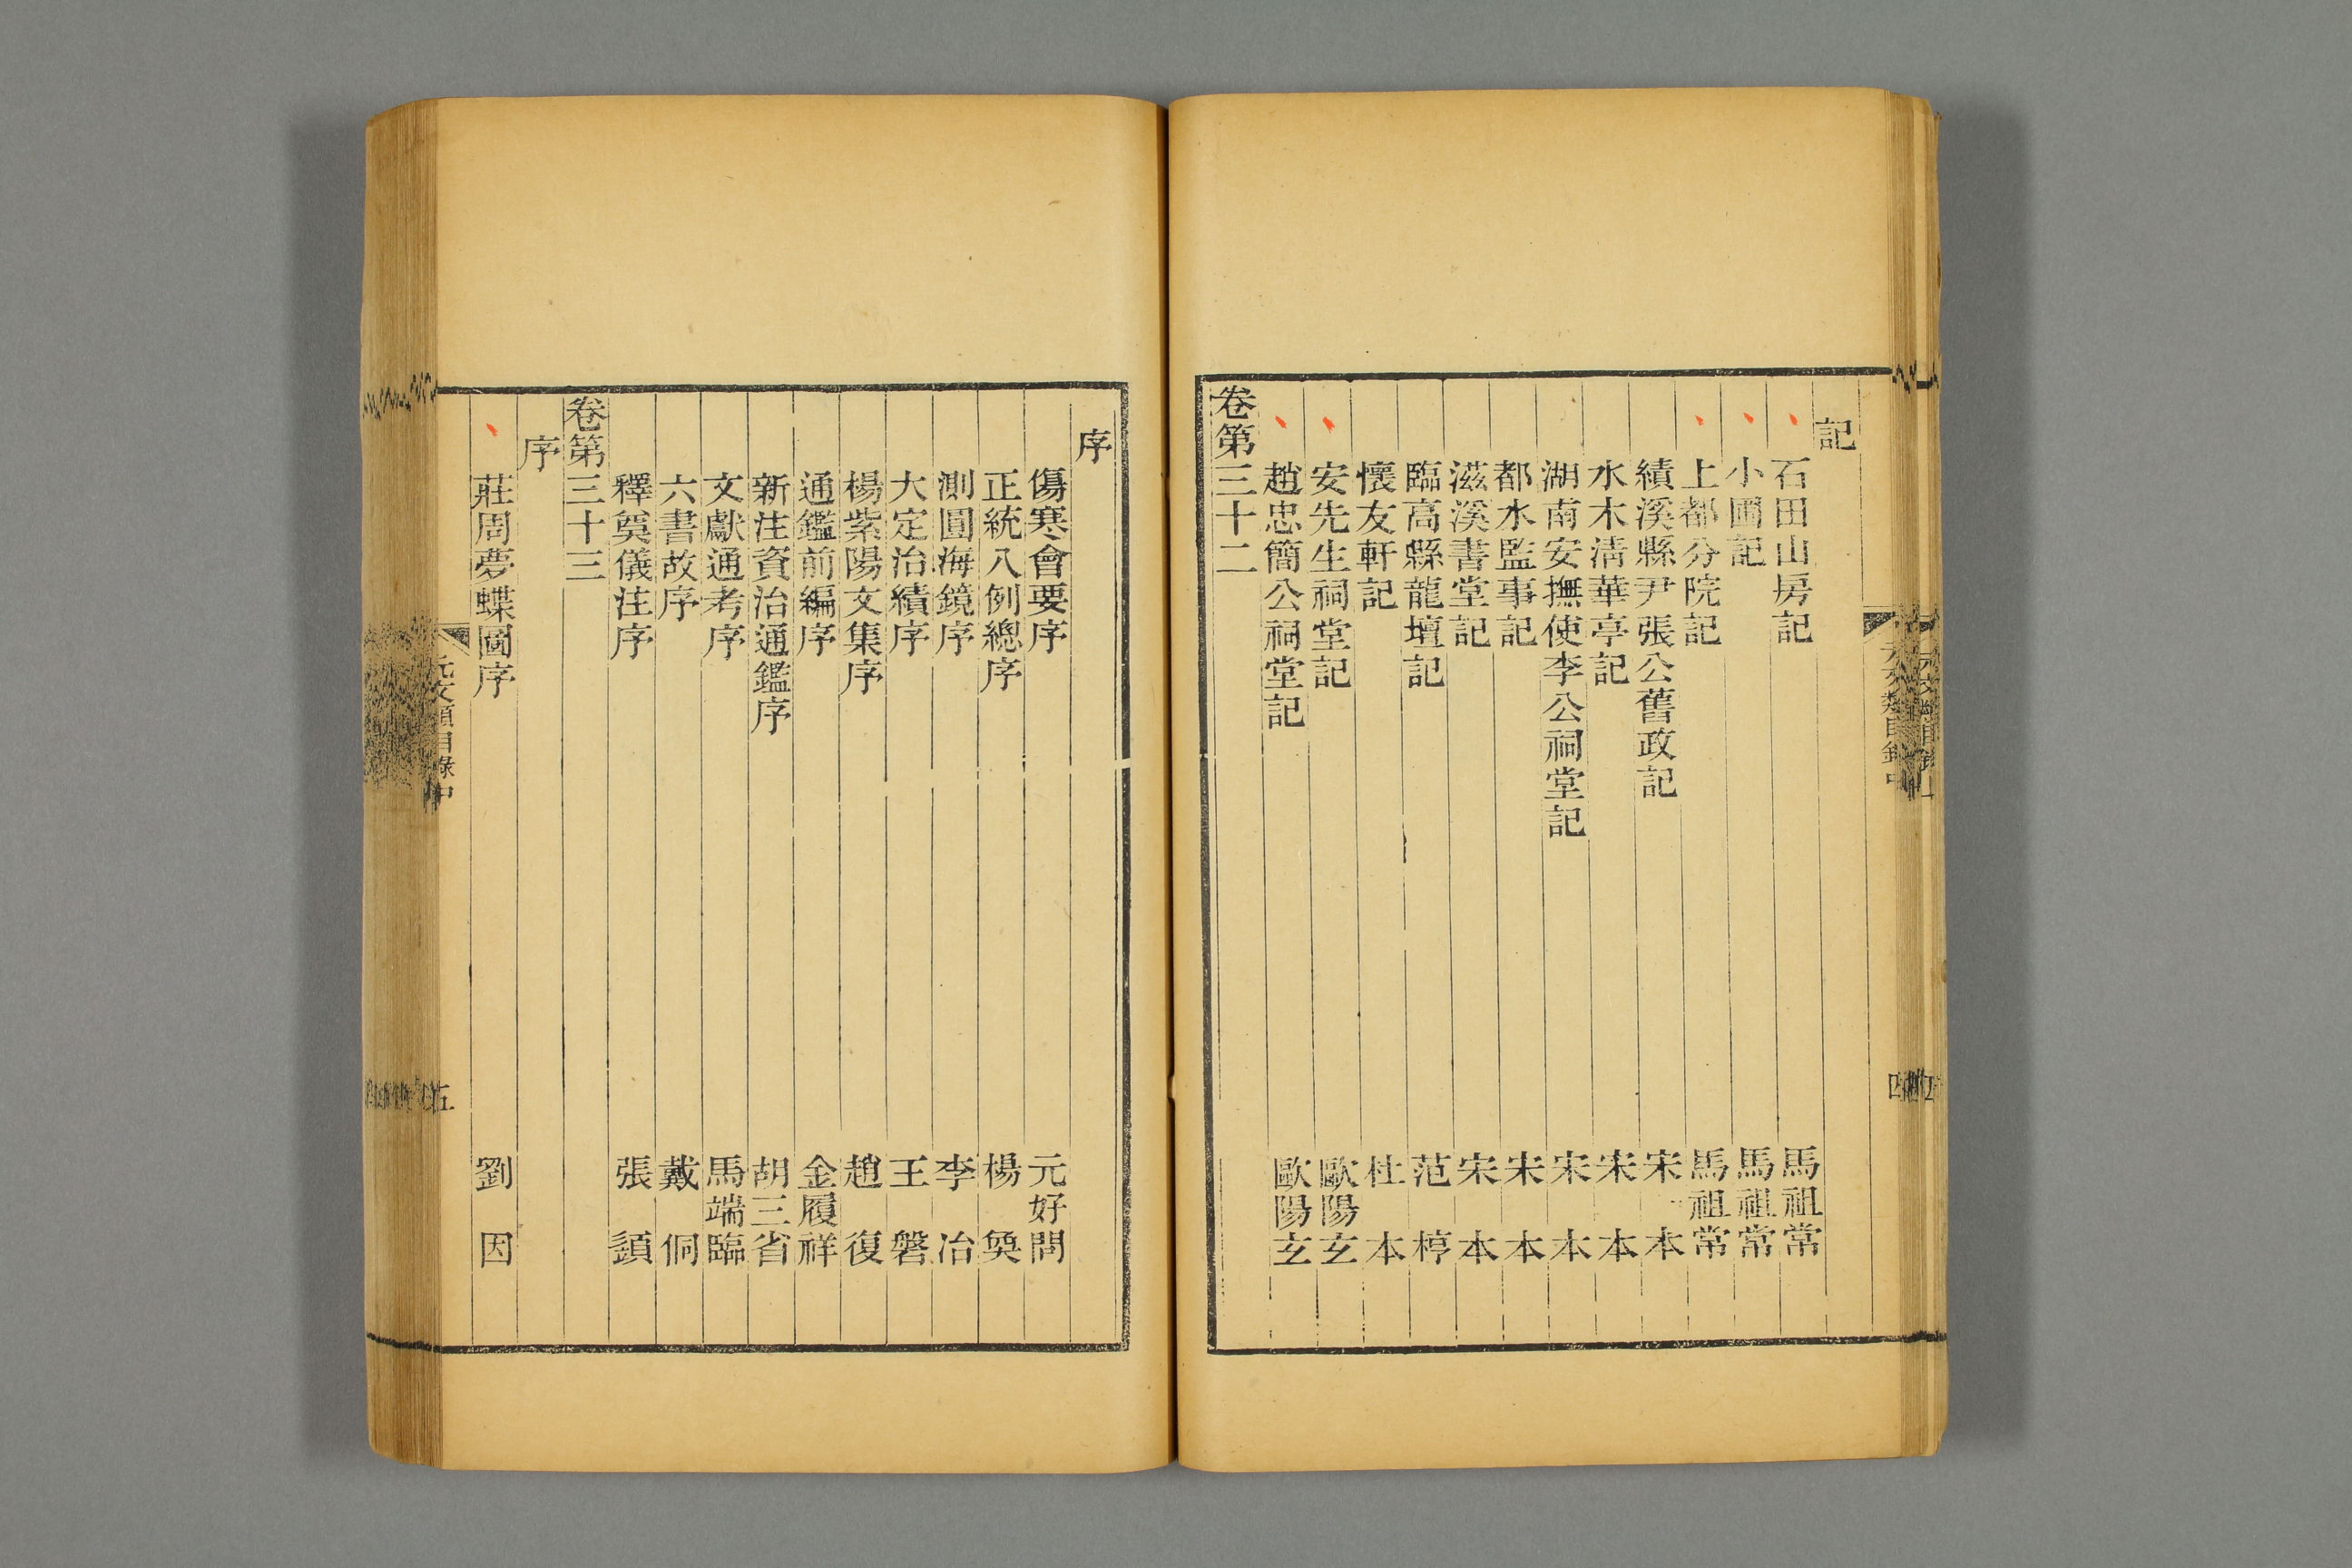 記
石田山房記 馬祖常
小圃記 馬祖常
上都分院記 馬祖常
績溪縣尹張公舊政記 宋本
水木清華亭記 宋本
湖南安撫使李公祠堂記 宋本
都水監事記 宋本
滋溪書堂記 宋本
臨高縣龍壇記 范梈
懷友軒記 杜本
安先生祠堂記 歐陽玄
趙忠簡公祠堂記 歐陽玄
卷第三十二
序
傷寒會要序 元好問
正統八例總序 楊奐
測圓海鏡序 李冶
大定治績序 王磐
楊紫陽文集序 趙復
通鑑前編序 金履祥
新注資治通鑑序 胡三省
文獻通考序 馬端臨
六書故序 戴侗
釋奠儀注序 張𩔖
卷第三十三
序
莊周夢蝶圖序 劉因
元文類目錄中
五